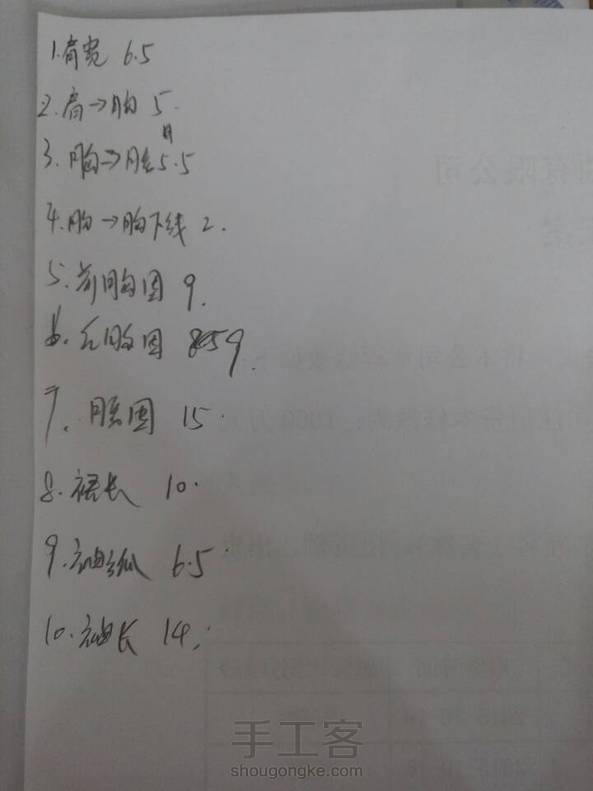 1.肩宽 6.5
2.肩→胸 5.
3.胸→腰 5.5
4.胸→胸下线 2.
5.前胸围 9.
6.后胸围 9.
7.腰围 15
8.裙长 10.
9.袖弧 6.5
10.袖长 14.
手工客
shougongke.com